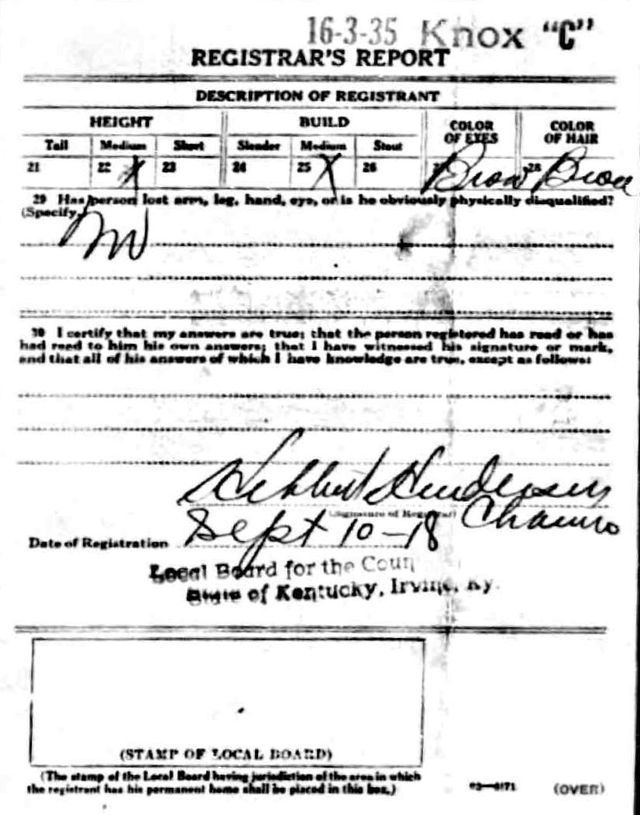 16-3-35 Knox "C"
REGISTRAR'S REPORT
DESCRIPTION OF REGISTRANT
HEIGHT BUILD COLOR OF EYES COLOR OF HAIR
Tall Medium Short Slender Medium Stout
21 22 X 23 24 25 X 26 27 Brow 28 Brow
29 Has person lost arm, leg, hand, eye, or is he obviously physically disqualified?
(Specify.)
30 I certify that my answers are true; that the person registered has read or has
had read to him his own answers; that I have witnessed his signature or mark,
and that all of his answers of which I have knowledge are true, except as follows:
Henderson
(Signature of Registrar)
Date of Registration Sept 10-18
Local Board for the Coun
State of Kentucky, Irvine, Ky.
(STAMP OF LOCAL BOARD)
(The stamp of the Local Board having jurisdiction of the area in which
the registrant has his permanent home shall be placed in this box.)
03-6171 (OVER)